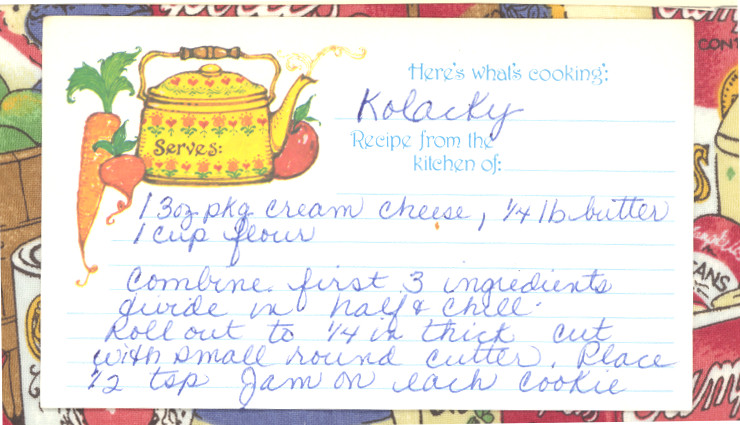 Here's what's cooking:
Kolacky
Serves:
Recipe from the
kitchen of:
1 3oz pkg cream cheese, 1/4 lb butter
1 cup flour
Combine first 3 ingredients
divide in half & chill.
Roll out to 1/4 in thick cut
with small round cutter. Place
1/2 tsp Jam on each cookie
CON
ANS